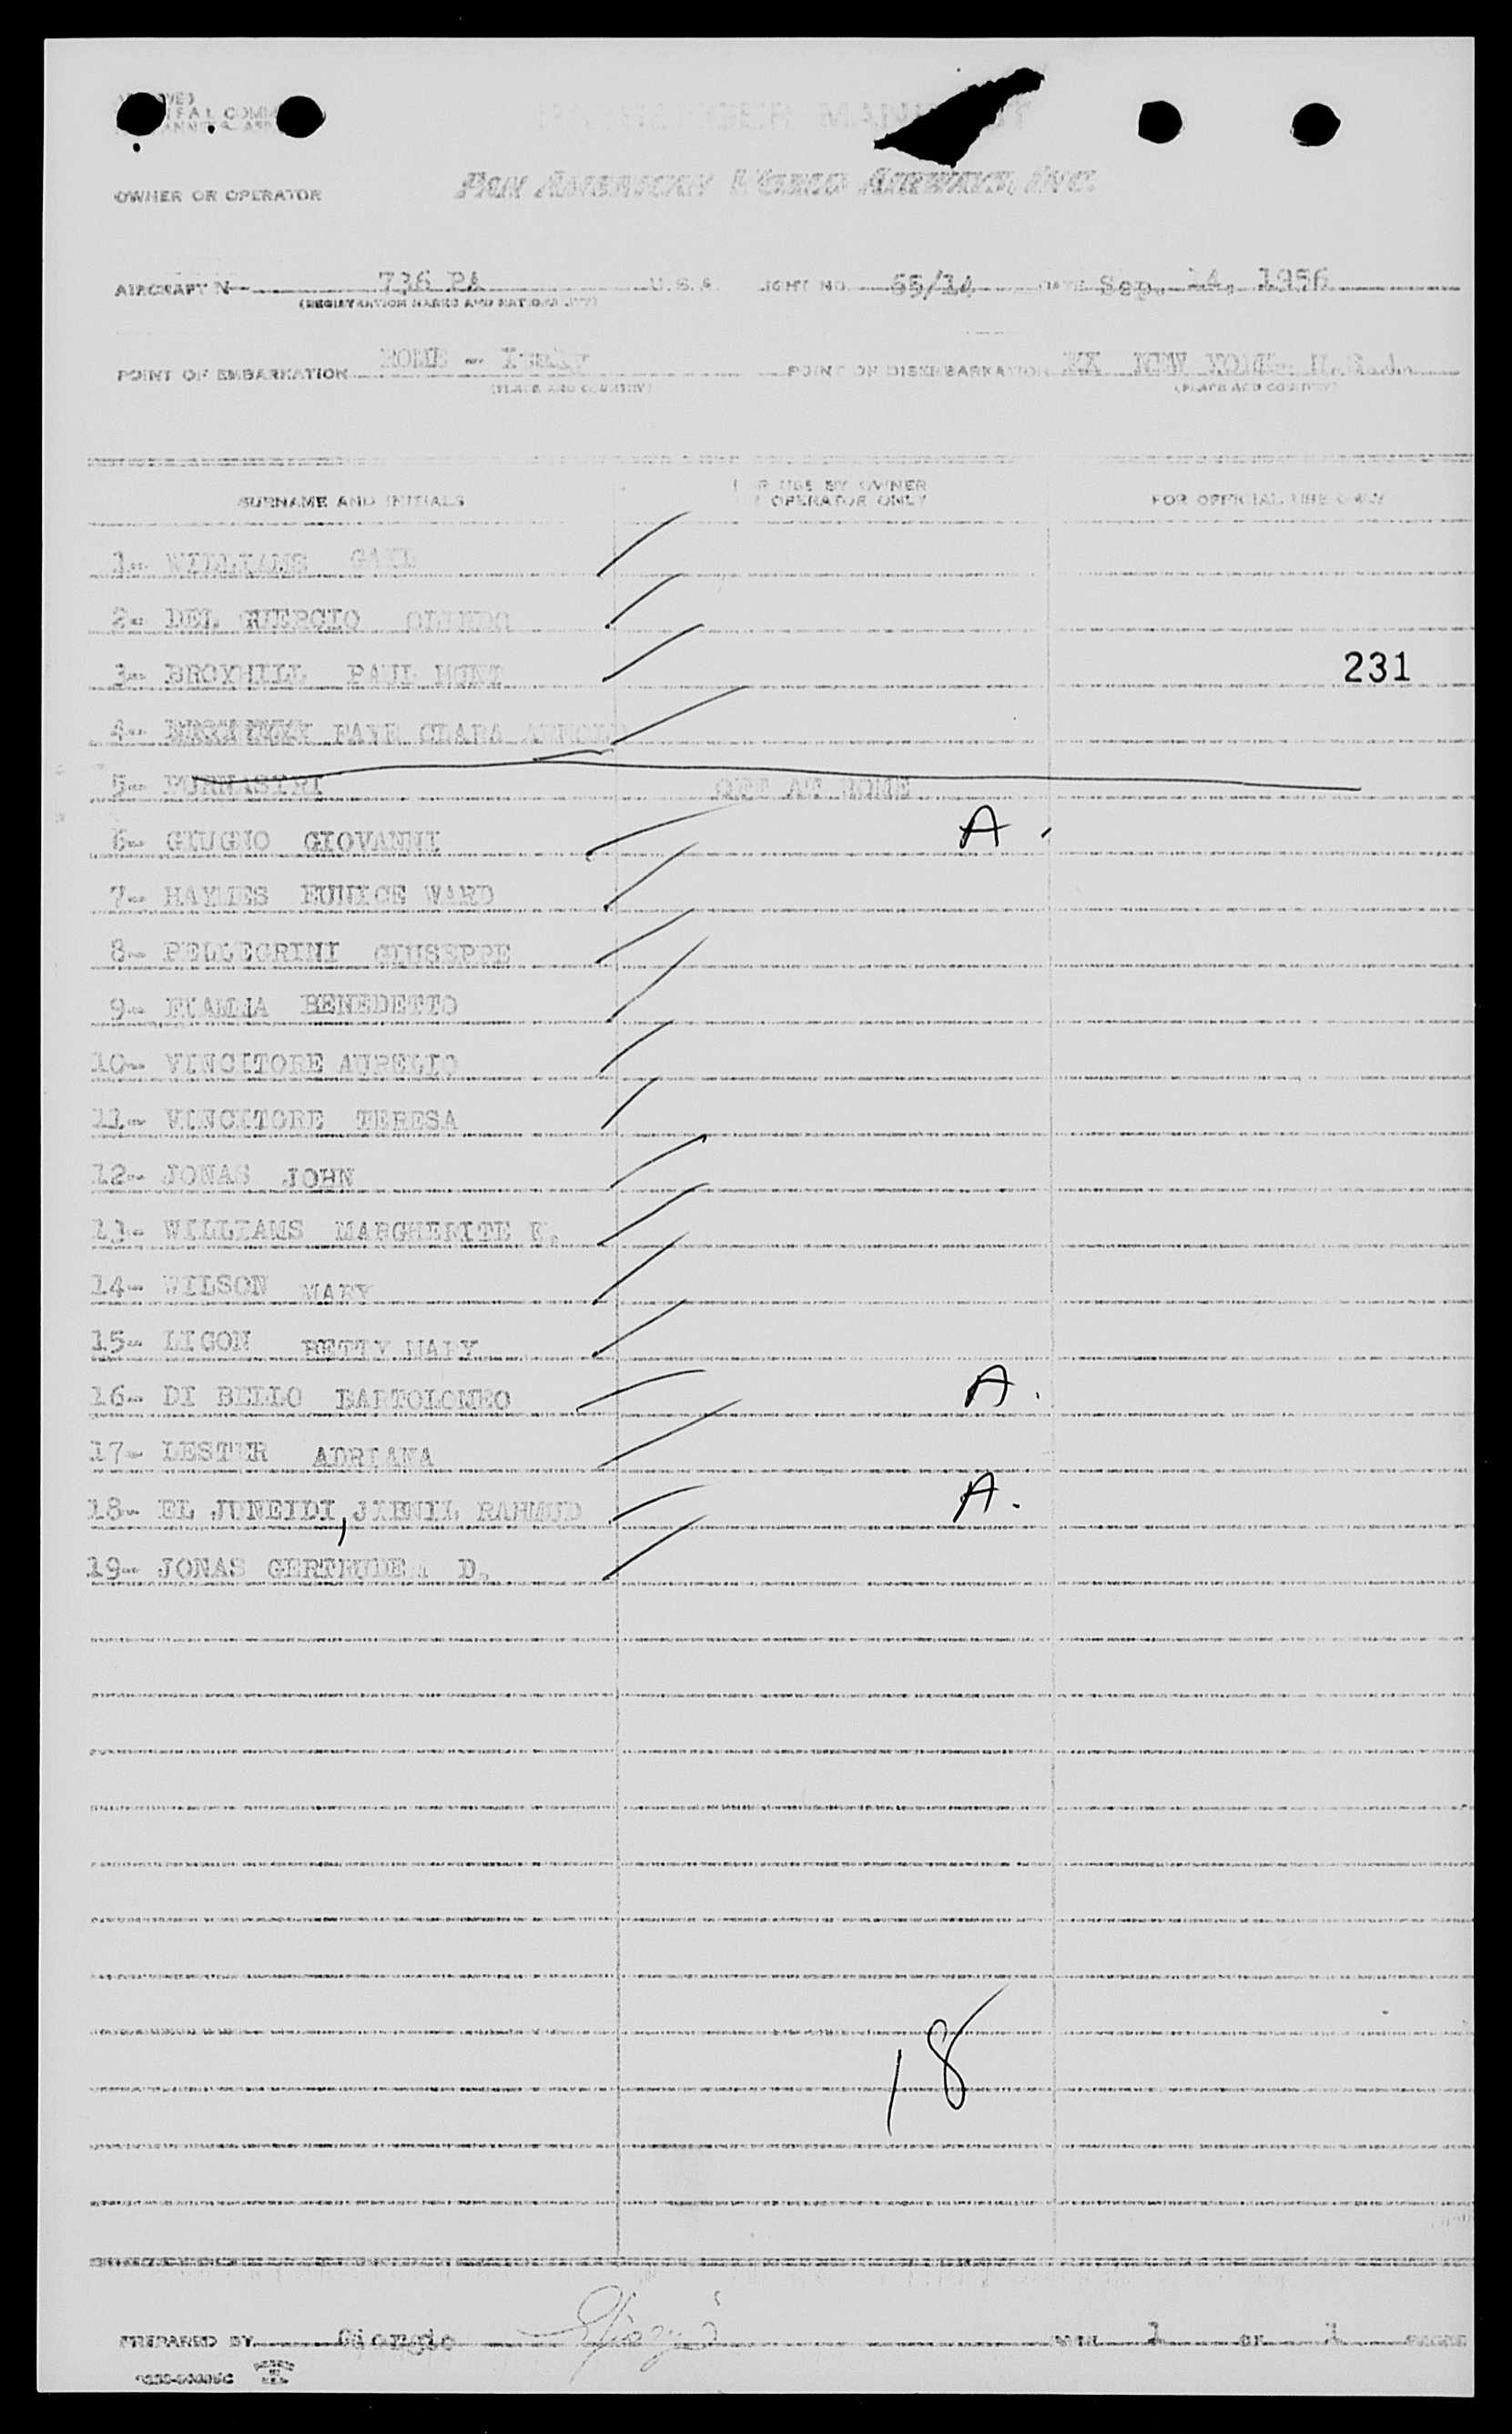 PASSENGER MANIFEST
OWNER OR OPERATOR PAN AMERICAN WORLD AIRWAYS, INC.
AIRCRAFT N- 736 PA U.S.A. FLIGHT NO. 65/14 DATE Sep. 14, 1956
(REGISTRATION MARKS AND NATIONALITY)
POINT OF EMBARKATION ROME - Italy POINT OF DISEMBARKATION NEW YORK- U.S.A.
(PLACE AND COUNTRY) (PLACE AND COUNTRY)
SURNAME AND INITIALS FOR USE BY OWNER OR OPERATOR ONLY FOR OFFICIAL USE ONLY
1- WILLIAMS GAIL
2- DEL GUERCIO
3- BROYHILL PAUL HUNT 231
4- FAYE CLARA ARNOLD
5- OFF AT ROME
6- GIUGNO GIOVANNI A.
7- HAYNES EUNICE WARD
8- PELLEGRINI GIUSEPPE
9- FIAMMA BENEDETTO
10- VINCITORE AURELIO
11- VINCITORE TERESA
12- JONAS JOHN
13- WILLIAMS MARGHERITE E.
14- WILSON MARY
15- LIGON BETTY MARY
16- DI BELLO BARTOLOMEO A.
17- LESTER ADRIANA
18- EL JUNEIDI, A.
19- JONAS GERTRUDE D.
18
PREPARED BY Giorgio Giorgi PAGE 1 OF 1 PAGES